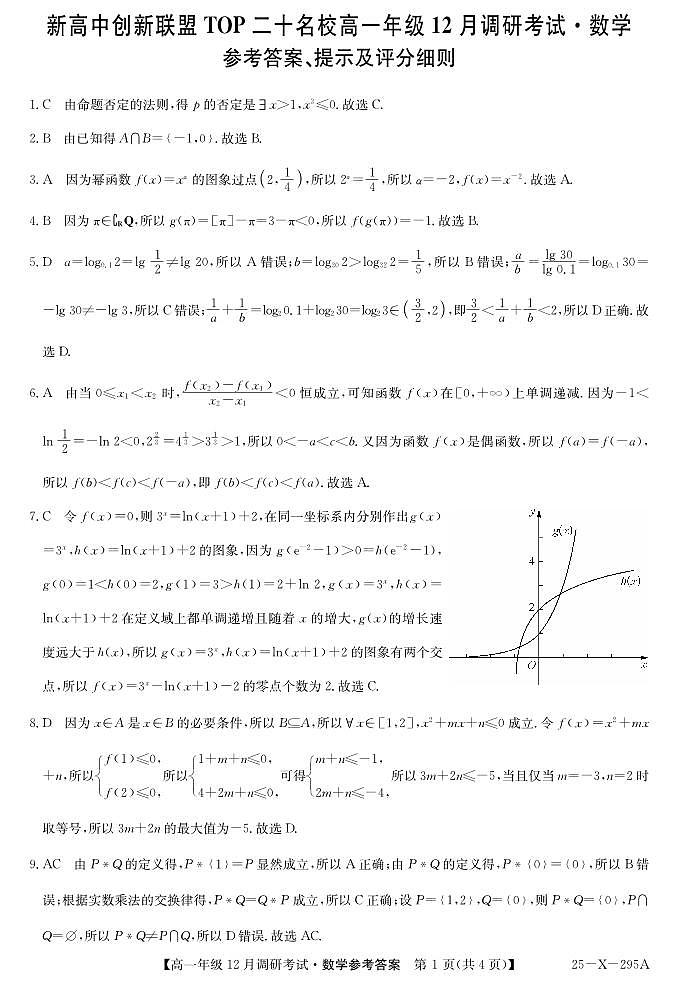 新高中创新联盟 TOP 二十名校高一年级 12 月调研考试·数学
参考答案、提示及评分细则
1. C 由命题否定的法则,得 p 的否定是∃x>1,x²≤0. 故选 C.
2. B 由已知得 A∩B={-1,0}. 故选 B.
3. A 因为幂函数 f(x)=xᵃ 的图象过点(2,1/4),所以 2ᵃ=1/4,所以 a=-2,f(x)=x⁻². 故选 A.
4. B 因为 π∈∁RQ,所以 g(π)=[π]-π=3-π<0,所以 f(g(π))=-1. 故选 B.
5. D a=log₀.₁2=lg 1/2≠lg 20,所以 A 错误;b=log₃₀2>log₃₂2=1/5,所以 B 错误;a/b=lg 30/lg 0.1=log₀.₁30=
-lg 30≠-lg 3,所以 C 错误;1/a+1/b=log₂0.1+log₂30=log₂3∈(3/2,2),即3/2<1/a+1/b<2,所以 D 正确. 故
选 D.
6. A 由当 0≤x₁<x₂ 时,f(x₂)-f(x₁)/x₂-x₁<0 恒成立,可知函数 f(x)在[0,+∞)上单调递减. 因为-1<
ln 1/2=-ln 2<0,2^(2/3)=4^(1/3)>3^(1/3)>1,所以 0<-a<c<b. 又因为函数 f(x)是偶函数,所以 f(a)=f(-a),
所以 f(b)<f(c)<f(-a),即 f(b)<f(c)<f(a). 故选 A.
7. C 令 f(x)=0,则 3ˣ=ln(x+1)+2,在同一坐标系内分别作出g(x)
=3ˣ,h(x)=ln(x+1)+2 的图象,因为 g(e⁻²-1)>0=h(e⁻²-1),
g(0)=1<h(0)=2,g(1)=3>h(1)=2+ln 2,g(x)=3ˣ,h(x)=
ln(x+1)+2 在定义域上都单调递增且随着 x 的增大,g(x)的增长速
度远大于 h(x),所以 g(x)=3ˣ,h(x)=ln(x+1)+2 的图象有两个交
点,所以 f(x)=3ˣ-ln(x+1)-2 的零点个数为 2. 故选 C.
y
g(x)
4
h(x)
2
O
x
8. D 因为 x∈A 是 x∈B 的必要条件,所以 B⊆A,所以∀x∈[1,2],x²+mx+n≤0 成立. 令 f(x)=x²+mx
+n,所以{f(1)≤0, f(2)≤0, 所以{1+m+n≤0, 4+2m+n≤0, 可得{m+n≤-1, 2m+n≤-4, 所以 3m+2n≤-5,当且仅当 m=-3,n=2 时
取等号,所以 3m+2n 的最大值为-5. 故选 D.
9. AC 由 P*Q 的定义得,P*{1}=P 显然成立,所以 A 正确;由 P*Q 的定义得,P*{0}={0},所以 B 错
误;根据实数乘法的交换律得,P*Q=Q*P 成立,所以 C 正确;设 P={1,2},Q={0},则 P*Q={0},P∩
Q=∅,所以 P*Q≠P∩Q,所以 D 错误. 故选 AC.
【高一年级 12 月调研考试·数学参考答案 第 1 页(共 4 页)】 25-X-295A